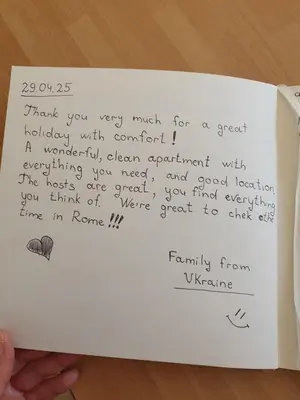 29.04.25
Thank you very much for a great
holiday with comfort!
A wonderful, clean apartment with
everything you need, and good location.
The hosts are great, you find everything
you think of. We're great to chek othe
time in Rome!!!
Family from
Ukraine